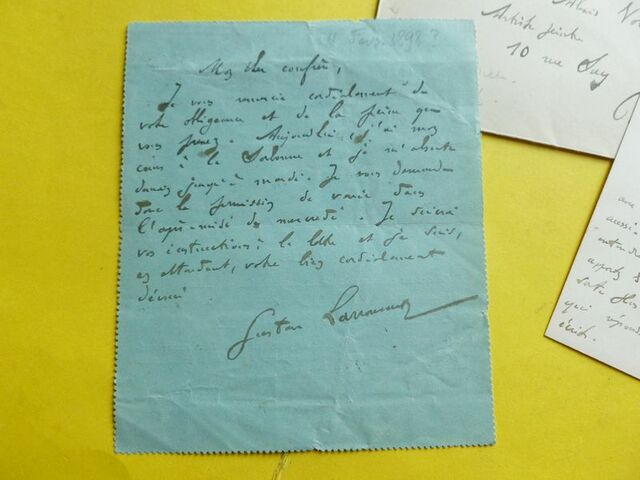 11 Févr. 1898 ?
Mon cher confrère,
Je vous remercie cordialement de
votre obligeance et de la peine que
vous prenez. Aujourd'hui, j'ai mon
cours à la Sorbonne et je m'absente
demain jusqu'à mardi. Je vous demanderai
donc la permission de venir dans
l'après-midi de mercredi. Je suivrai
vos instructions à la lettre et je suis,
en attendant, votre bien cordialement
dévoué
Gustave Larroumet
Artiste peintre
10 rue
aussi
qui
écrit.